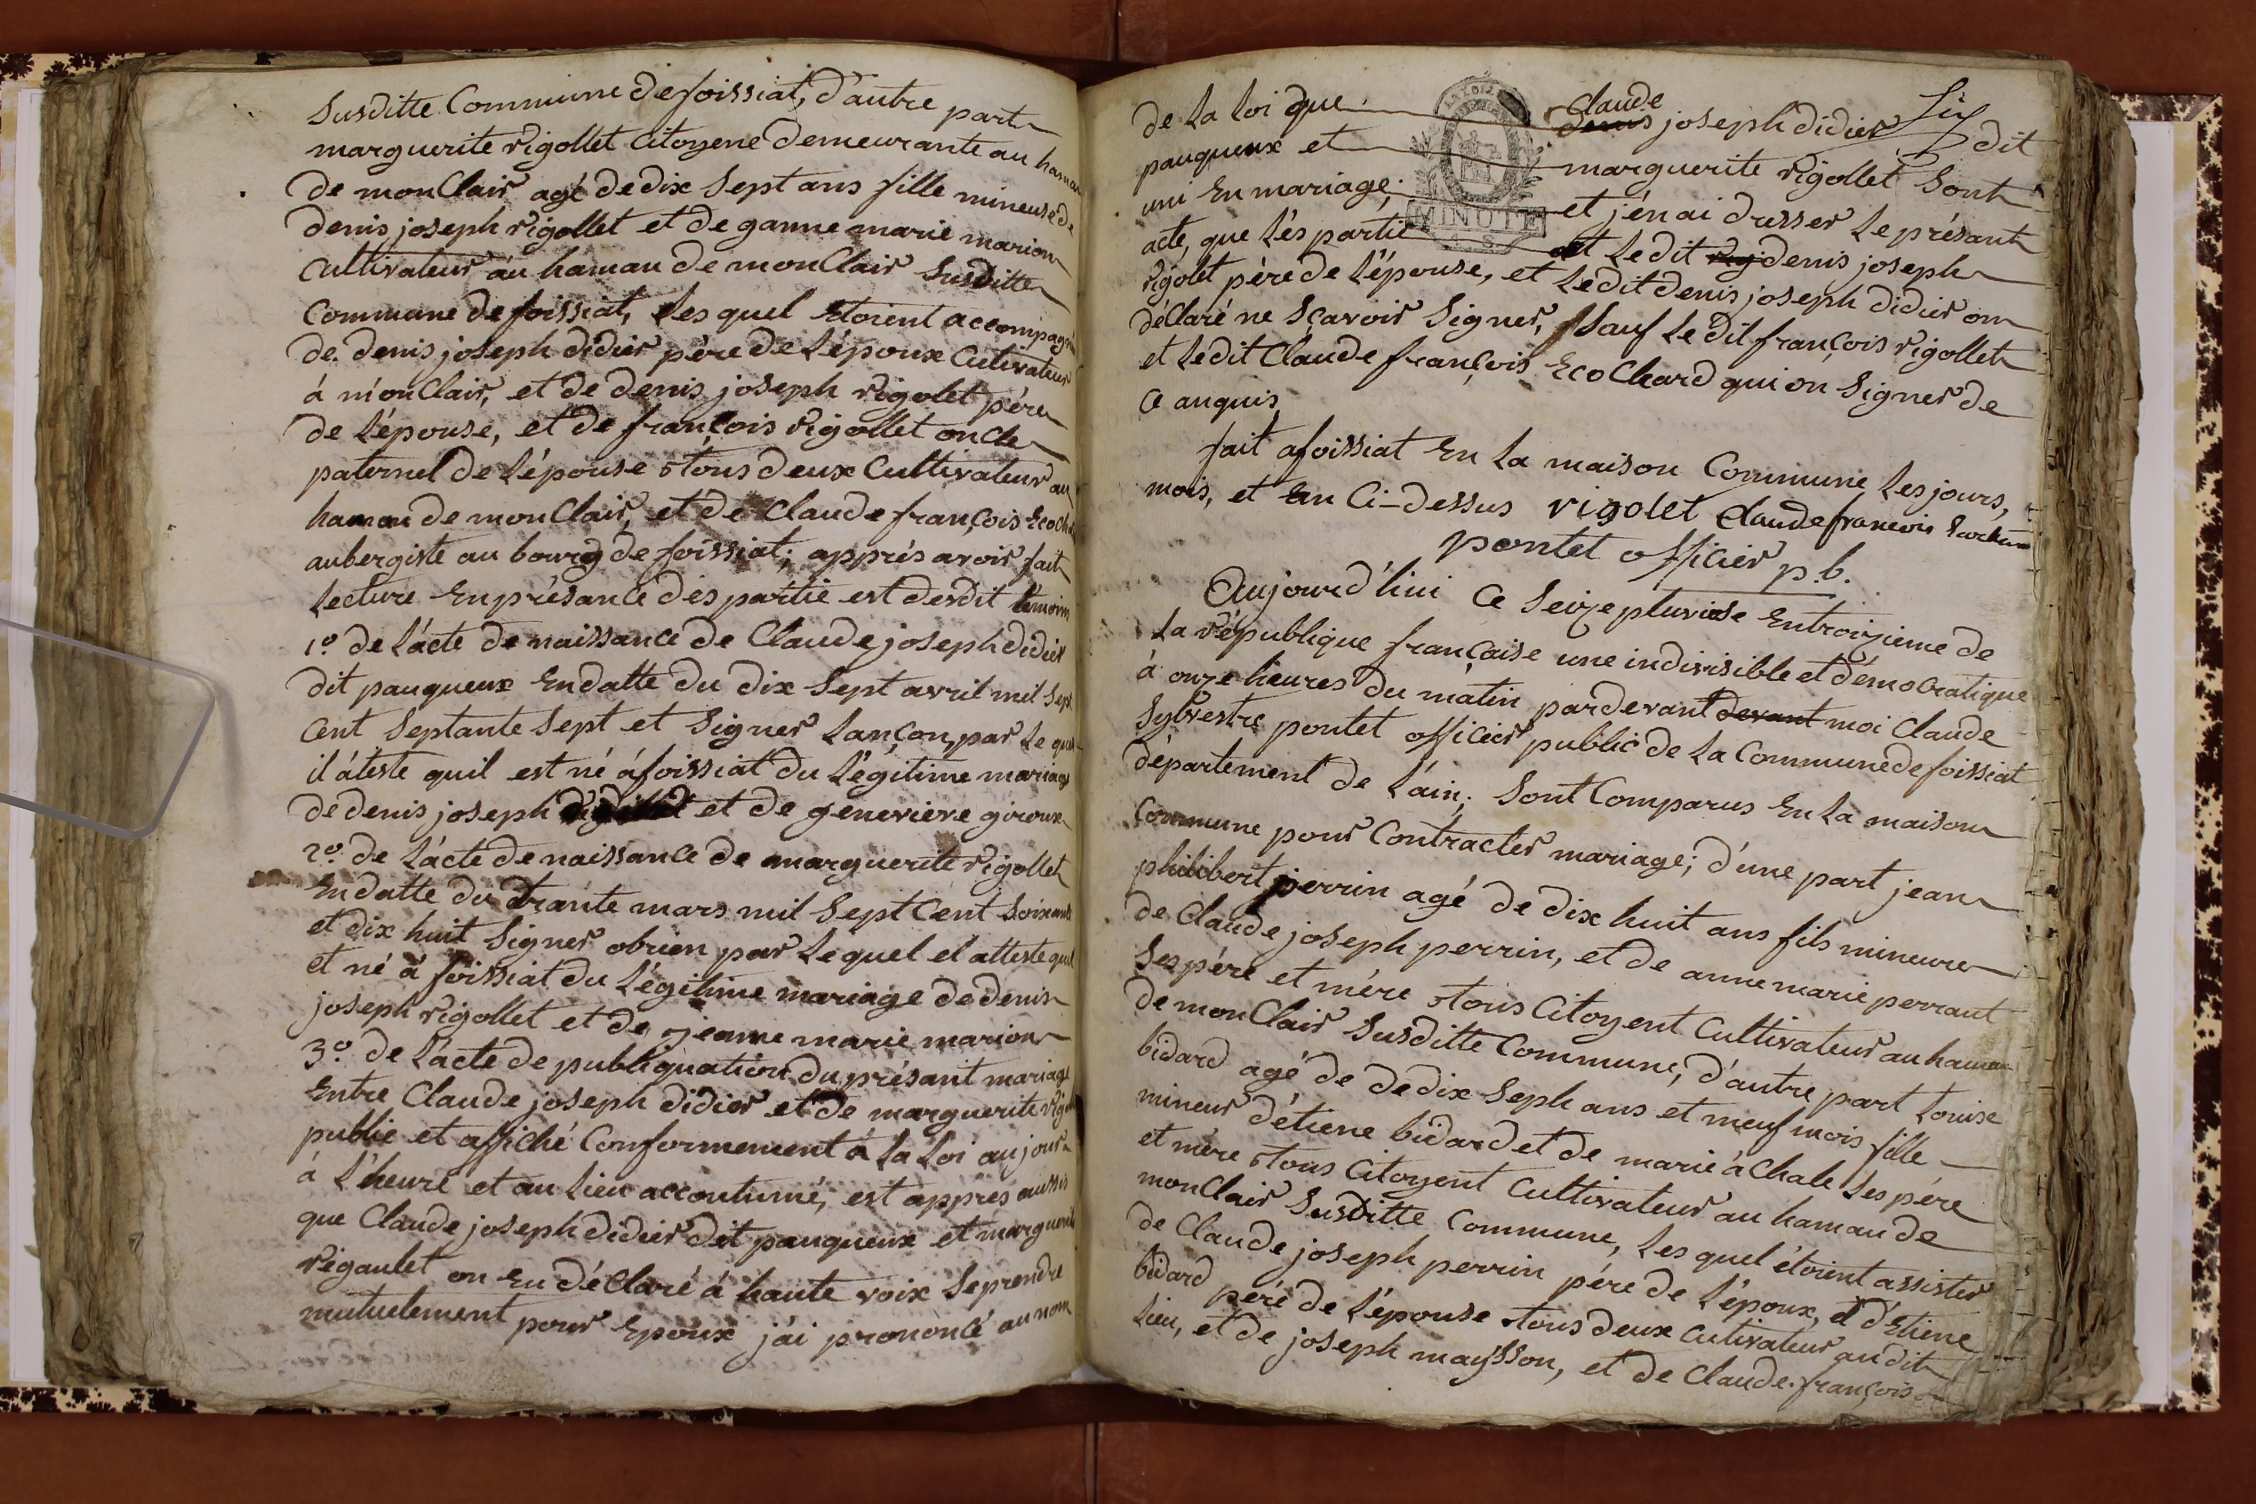 Susditte Commune de foissiat, d'autre part
marguerite rigollet Citoyene demeurante au hamau
de monClair agé de dix Sept ans fille mineuse de
denis joseph rigollet et de ganne marie marion
Cultivateur au hamau de monClair Susditte
Commune de foissiat, Les quel Etoient accompagné
de denis joseph didier pére de L'époux Cutivateur
á monClair, et de denis joseph rigolet pére
de L'épouse, et de françois rigollet oncle
paternel de L'épouse tous deux Cultivateur au
hamau de monClair, et de Claude françois Ecoch
aubergiste au bourg de foissiat; apprés avoir fait
Lecture En présance des partie est desdit témoin
1º de L'acte de naissance de Claude joseph didier
dit pauqueux En datte du dix Sept avril mil Sept
Cent Septante Sept et Signer Lançon, par Le quel
il áteste quil est né á foissiat du Légitime mariage
de denis joseph et de genevieve giroux
2º de L'acte de naissance de marguerite rigollet
En datte du trante mars mil Sept Cent Soixante
et dix huit Signer obrien par Lequel el atteste quel
et né á foissiat du Légitime mariage de denis
joseph rigollet et de jeanne marie marion
3º de L'acte de publiquation du présant mariage
Entre Claude joseph didier et de marguerite rigo
publié et affiché Conformement á La Loi au jour
á L'heure et au Lieu accoutumé; est apprés aussis
que Claude joseph didier dit pauqueux et marguerite
rigaulet on En déClaré á haute voix Se prendre
mutuelement pour Epoux j'ai prononcé au nom
de La Loi que Claude denis joseph didier dit
pauqueux et marguerite rigollet Sont
uni En mariage; et j'én ai dresser Le présant
acte, que Lés partie et Le dit rig denis joseph
rigolet pére de L'épouse, et Ledit denis joseph didier on
déClaré ne Sçavoir Signer, Sauf Le dit françois rigollet
et Ledit Claude françois EcoChard qui on Signer de
Ce anquis
fait a foissiat En La maison Commune Les jours,
mois, et En Ci-dessus rigolet Claude francois
pontet officier p.b.
Aujourd'hui Ce Seize pluviose En troizieme de
La république française une indivisible et démocratique
á onze heures du matin pardevant devant moi Claude
Sylvestre pontet officier public de La Commune de foissiat
département de L'ain; Sont Comparus En La maison
Commune pour Contracter mariage; d'une part jean
philibert perrin agé de dix huit ans fils mineure
de Claude joseph perrin, et de anne marie perraut
Ses pére et mére tous Citoyent Cultivateur au hamau
de monClair Susditte Commune, d'autre part Louise
bidard agé de de dix Seph ans et neuf mois fille
mineur d'étiene bidard et de marie á Chale Ses pére
et mére tous Citoyent Cultivateur au hamau de
monClair Susditte Commune, Les quel étoient assister
de Claude joseph perrin pére de L'époux, et d'Etiene
bidard pére de L'épouse tous deux Cutivateur au dit
Lieu, et de joseph maysson, et de Claude françois
MINUTE